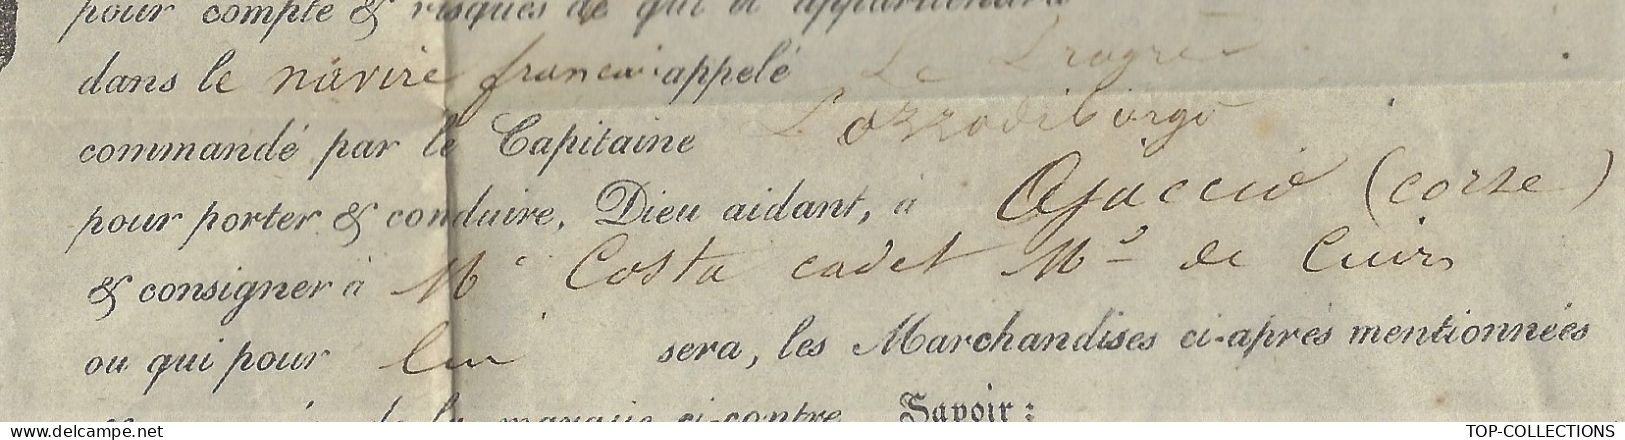 pour compte & risques de qui il appartiendra
dans le navire français appelé Le Progrès
commandé par le Capitaine Pozzodiborgo
pour porter & conduire, Dieu aidant, à Ajaccio (corse)
& consigner à Mr Costa cadet Md de Cuirs
ou qui pour lui sera, les Marchandises ci-après mentionnées
de la marque ci-contre Savoir:
TOP-COLLECTIONS